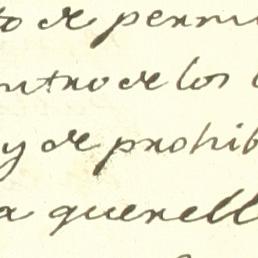 to de permi
ntro de los
y de prohib
a querell